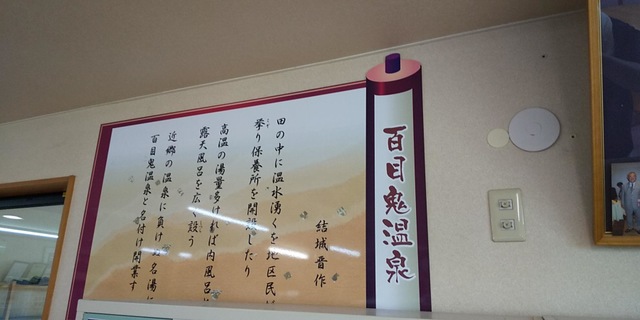 百目鬼温泉
結城晋作
田の中に温水湧くを地区民
挙り保養所を開設したり
高温の湯量多ければ内風呂
露天風呂を広く設う
近郷の温泉に負けぬ名湯に
百目鬼温泉と名付け開業す